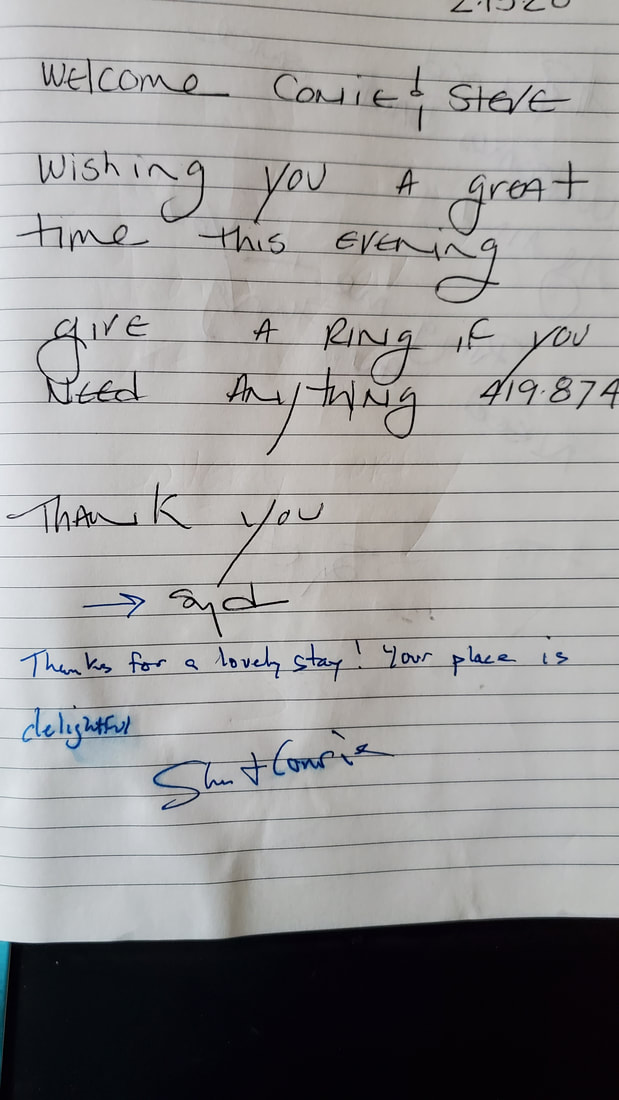 2.15.20
Welcome Conie & Steve
Wishing you A great
time this Evening
give A Ring if you
Need Anything 419.874
Thank you
→ Syd
Thanks for a lovely stay! Your place is
delightful
+ Connie